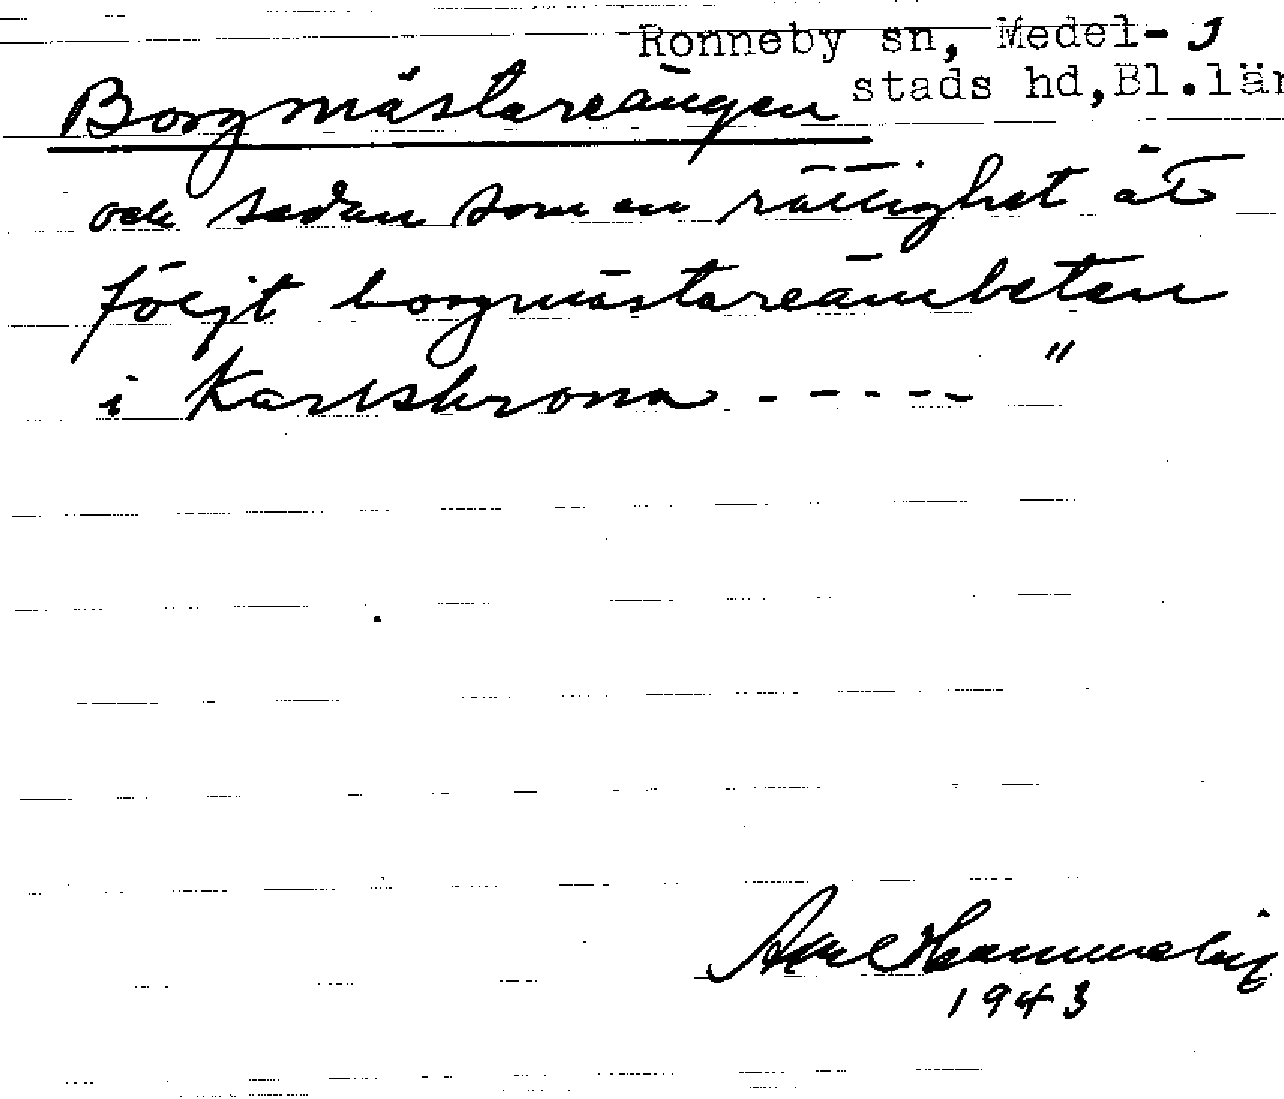 Ronneby sn, Medel-
stads hd, Bl. län
Borgmästareängen
och sedan som en rättighet åt-
följt borgmästareämbeten
i Karlskrona - - - - - "
1943